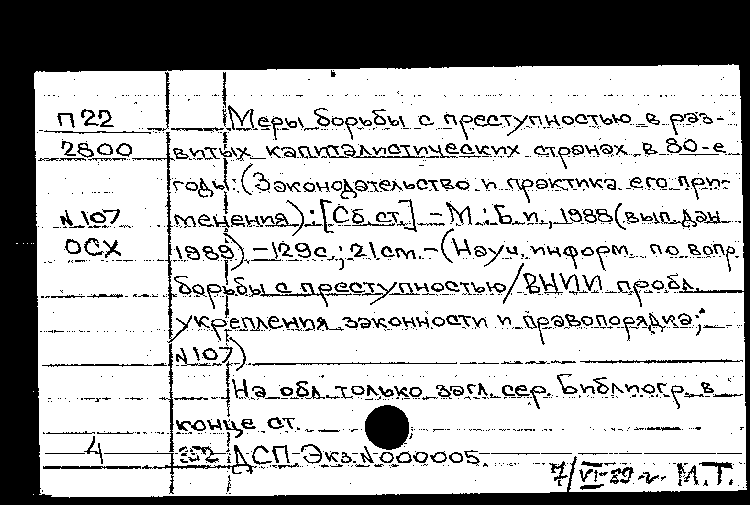 П 22 Меры борьбы с преступностью в раз-
2800 витых капиталистических странах в 80-е
годы: (Законодательство и практика его при-
N 107 менения): [Сб. ст.] - М.: Б. и., 1988 (вып. дан
ОСХ 1989) - 129 с.; 21 см. - (Науч. информ. по вопр.
борьбы с преступностью / ВНИИ пробл.
укрепления законности и правопорядка;
N 107)
На обл. только загл. сер. Библиогр. в
конце ст.
4 252 ДСП Экз. N 000005.
7/VI-89 г. М.Т.